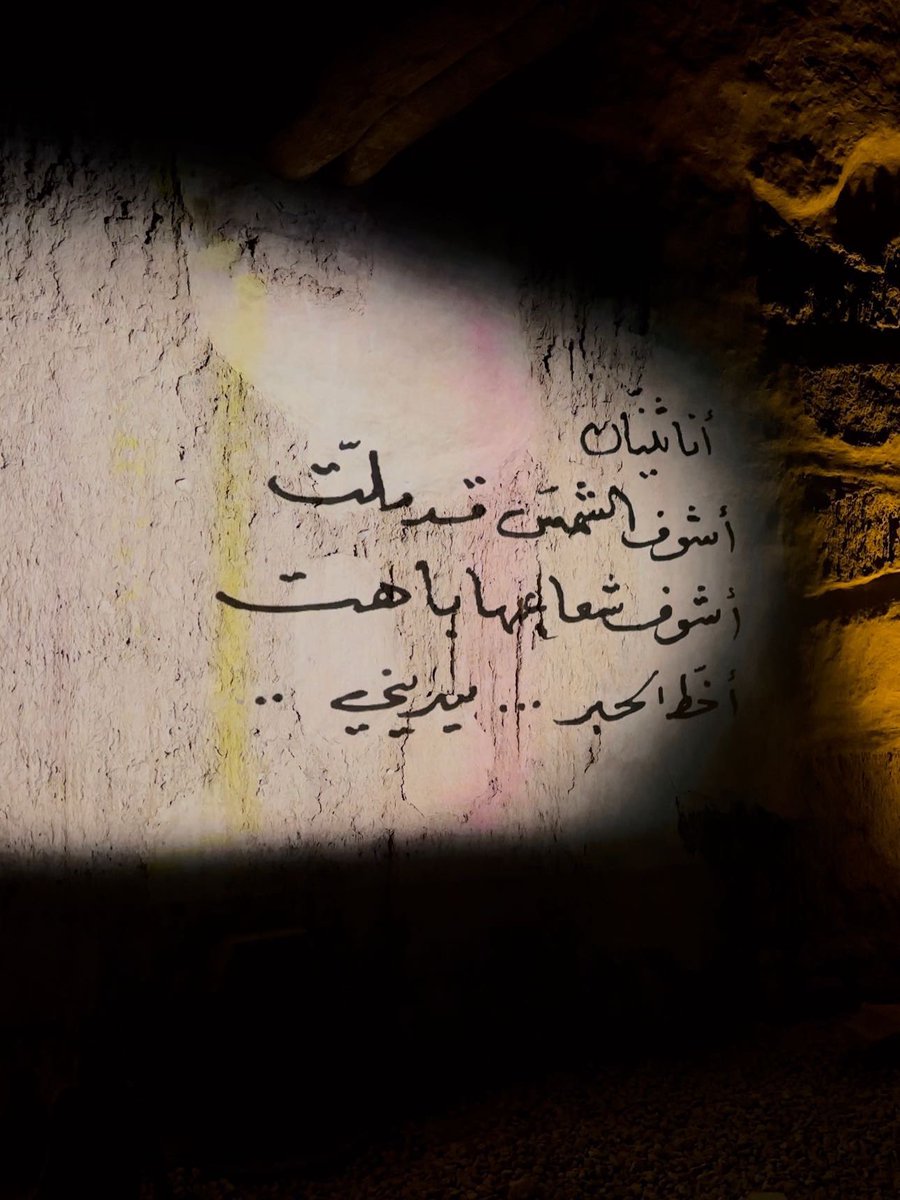 أنا ثنيّان
أشوف الشمسَ قد ملّت
أشوف شعاعها باهت
أخطّ الحبر ... يبريني ..